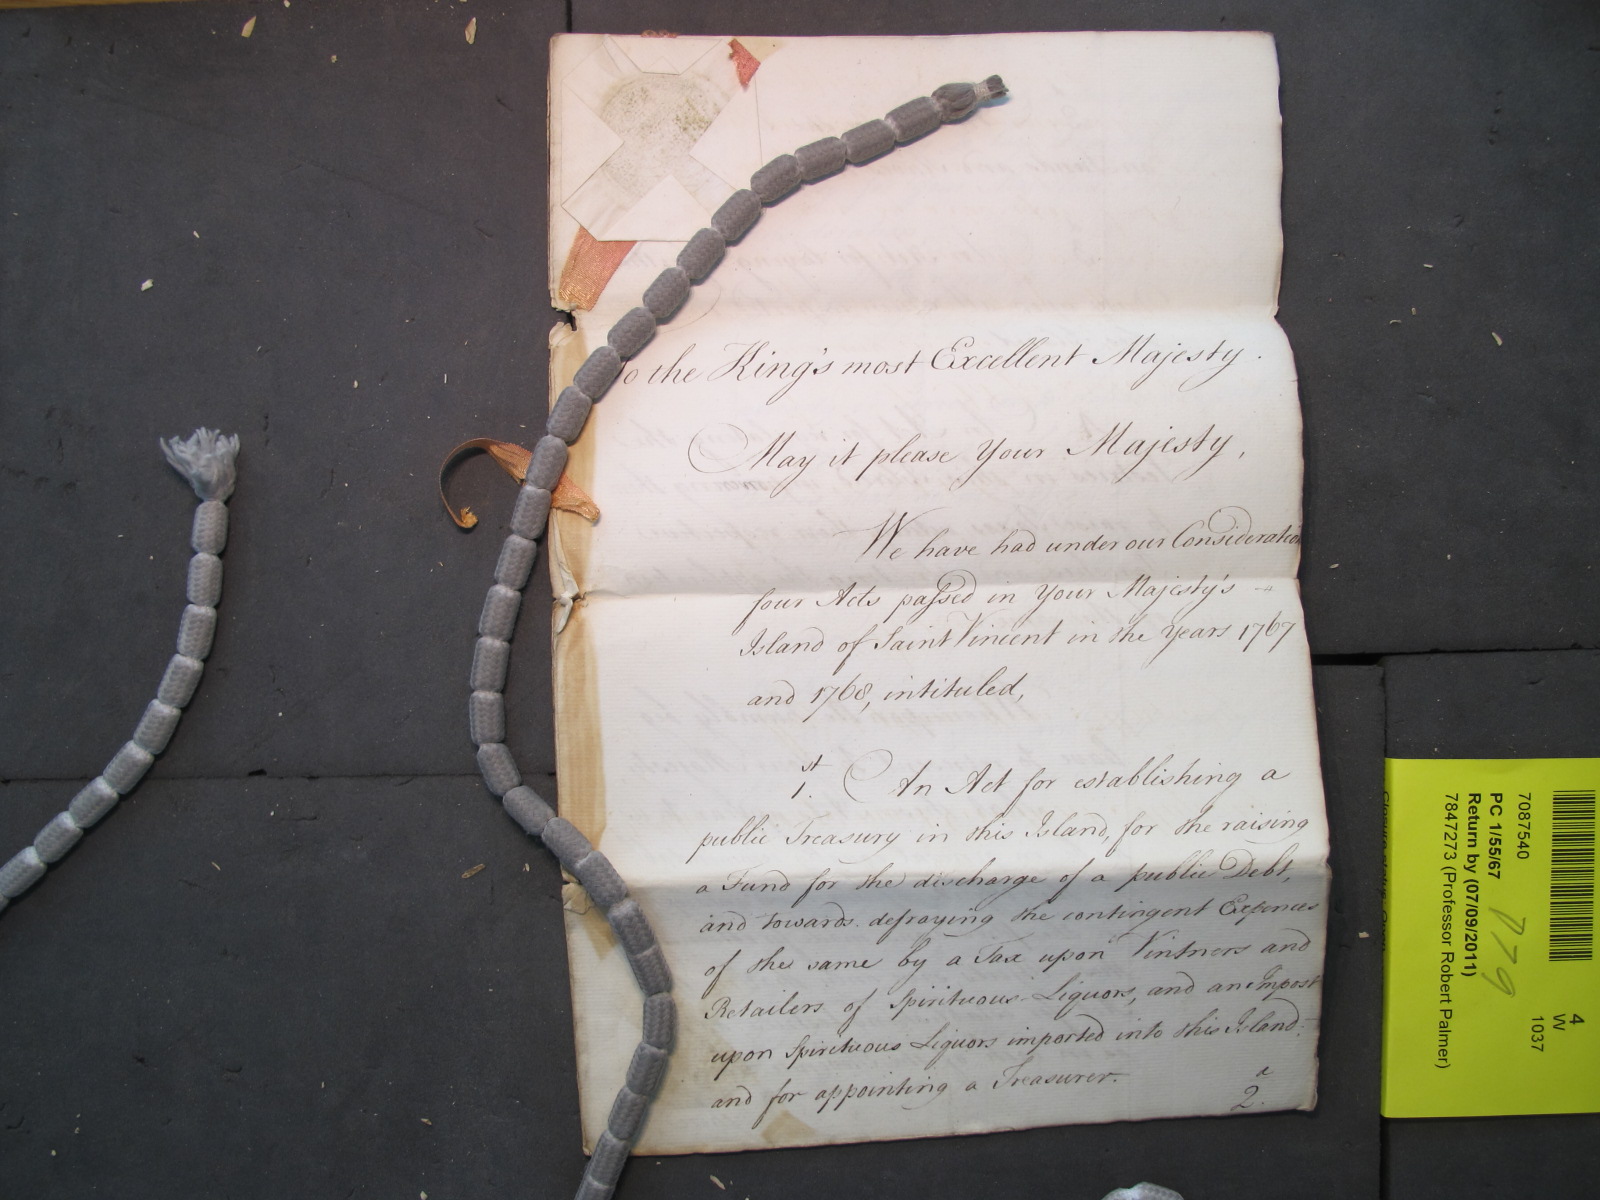 To the King's most Excellent Majesty.
May it please Your Majesty,
We have had under our Consideration
four Acts passed in Your Majesty's
Island of Saint Vincent in the Years 1767
and 1768, intituled,
1.st An Act for establishing a
public Treasury in this Island, for the raising
a Fund for the discharge of a public Debt,
and towards defraying the contingent Expences
of the same by a Tax upon Vintners and
Retailers of Spirituous Liquors, and an Impost
upon Spirituous Liquors imported into this Island:
and for appointing a Treasurer.
2.d
4
W
1037
7087540
PC 1/55/67
Return by (07/09/2011)
7847273 (Professor Robert Palmer)
779